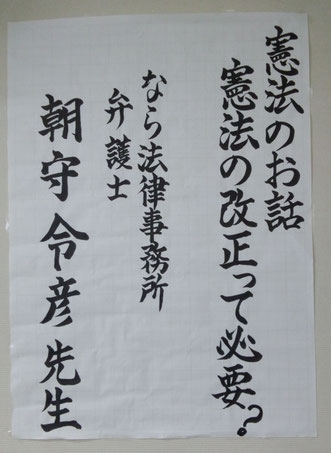 憲法のお話
憲法の改正って必要?
なら法律事務所
弁護士
朝守令彦先生